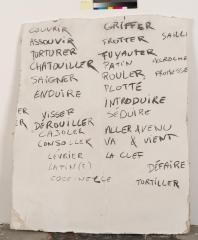 COUVRIR
ASSOUVIR
TORTURER
CHATOUILLER
SAIGNER
ENDUIRE
VISSER
DÉROUILLER
CAJOLER
CONSOLER
LÉVRIER
LATIN(E)
COCCINELLE
ER
ER
GRIFFER
FROTTER
TUYAUTER
PATIN
ROULER
PLOTTE
INTRODUIRE
SÉDUIRE
ALLER & VENU
VA & VIENT
LA CLEF
DÉFAIRE
TORTILLER
SAILLI